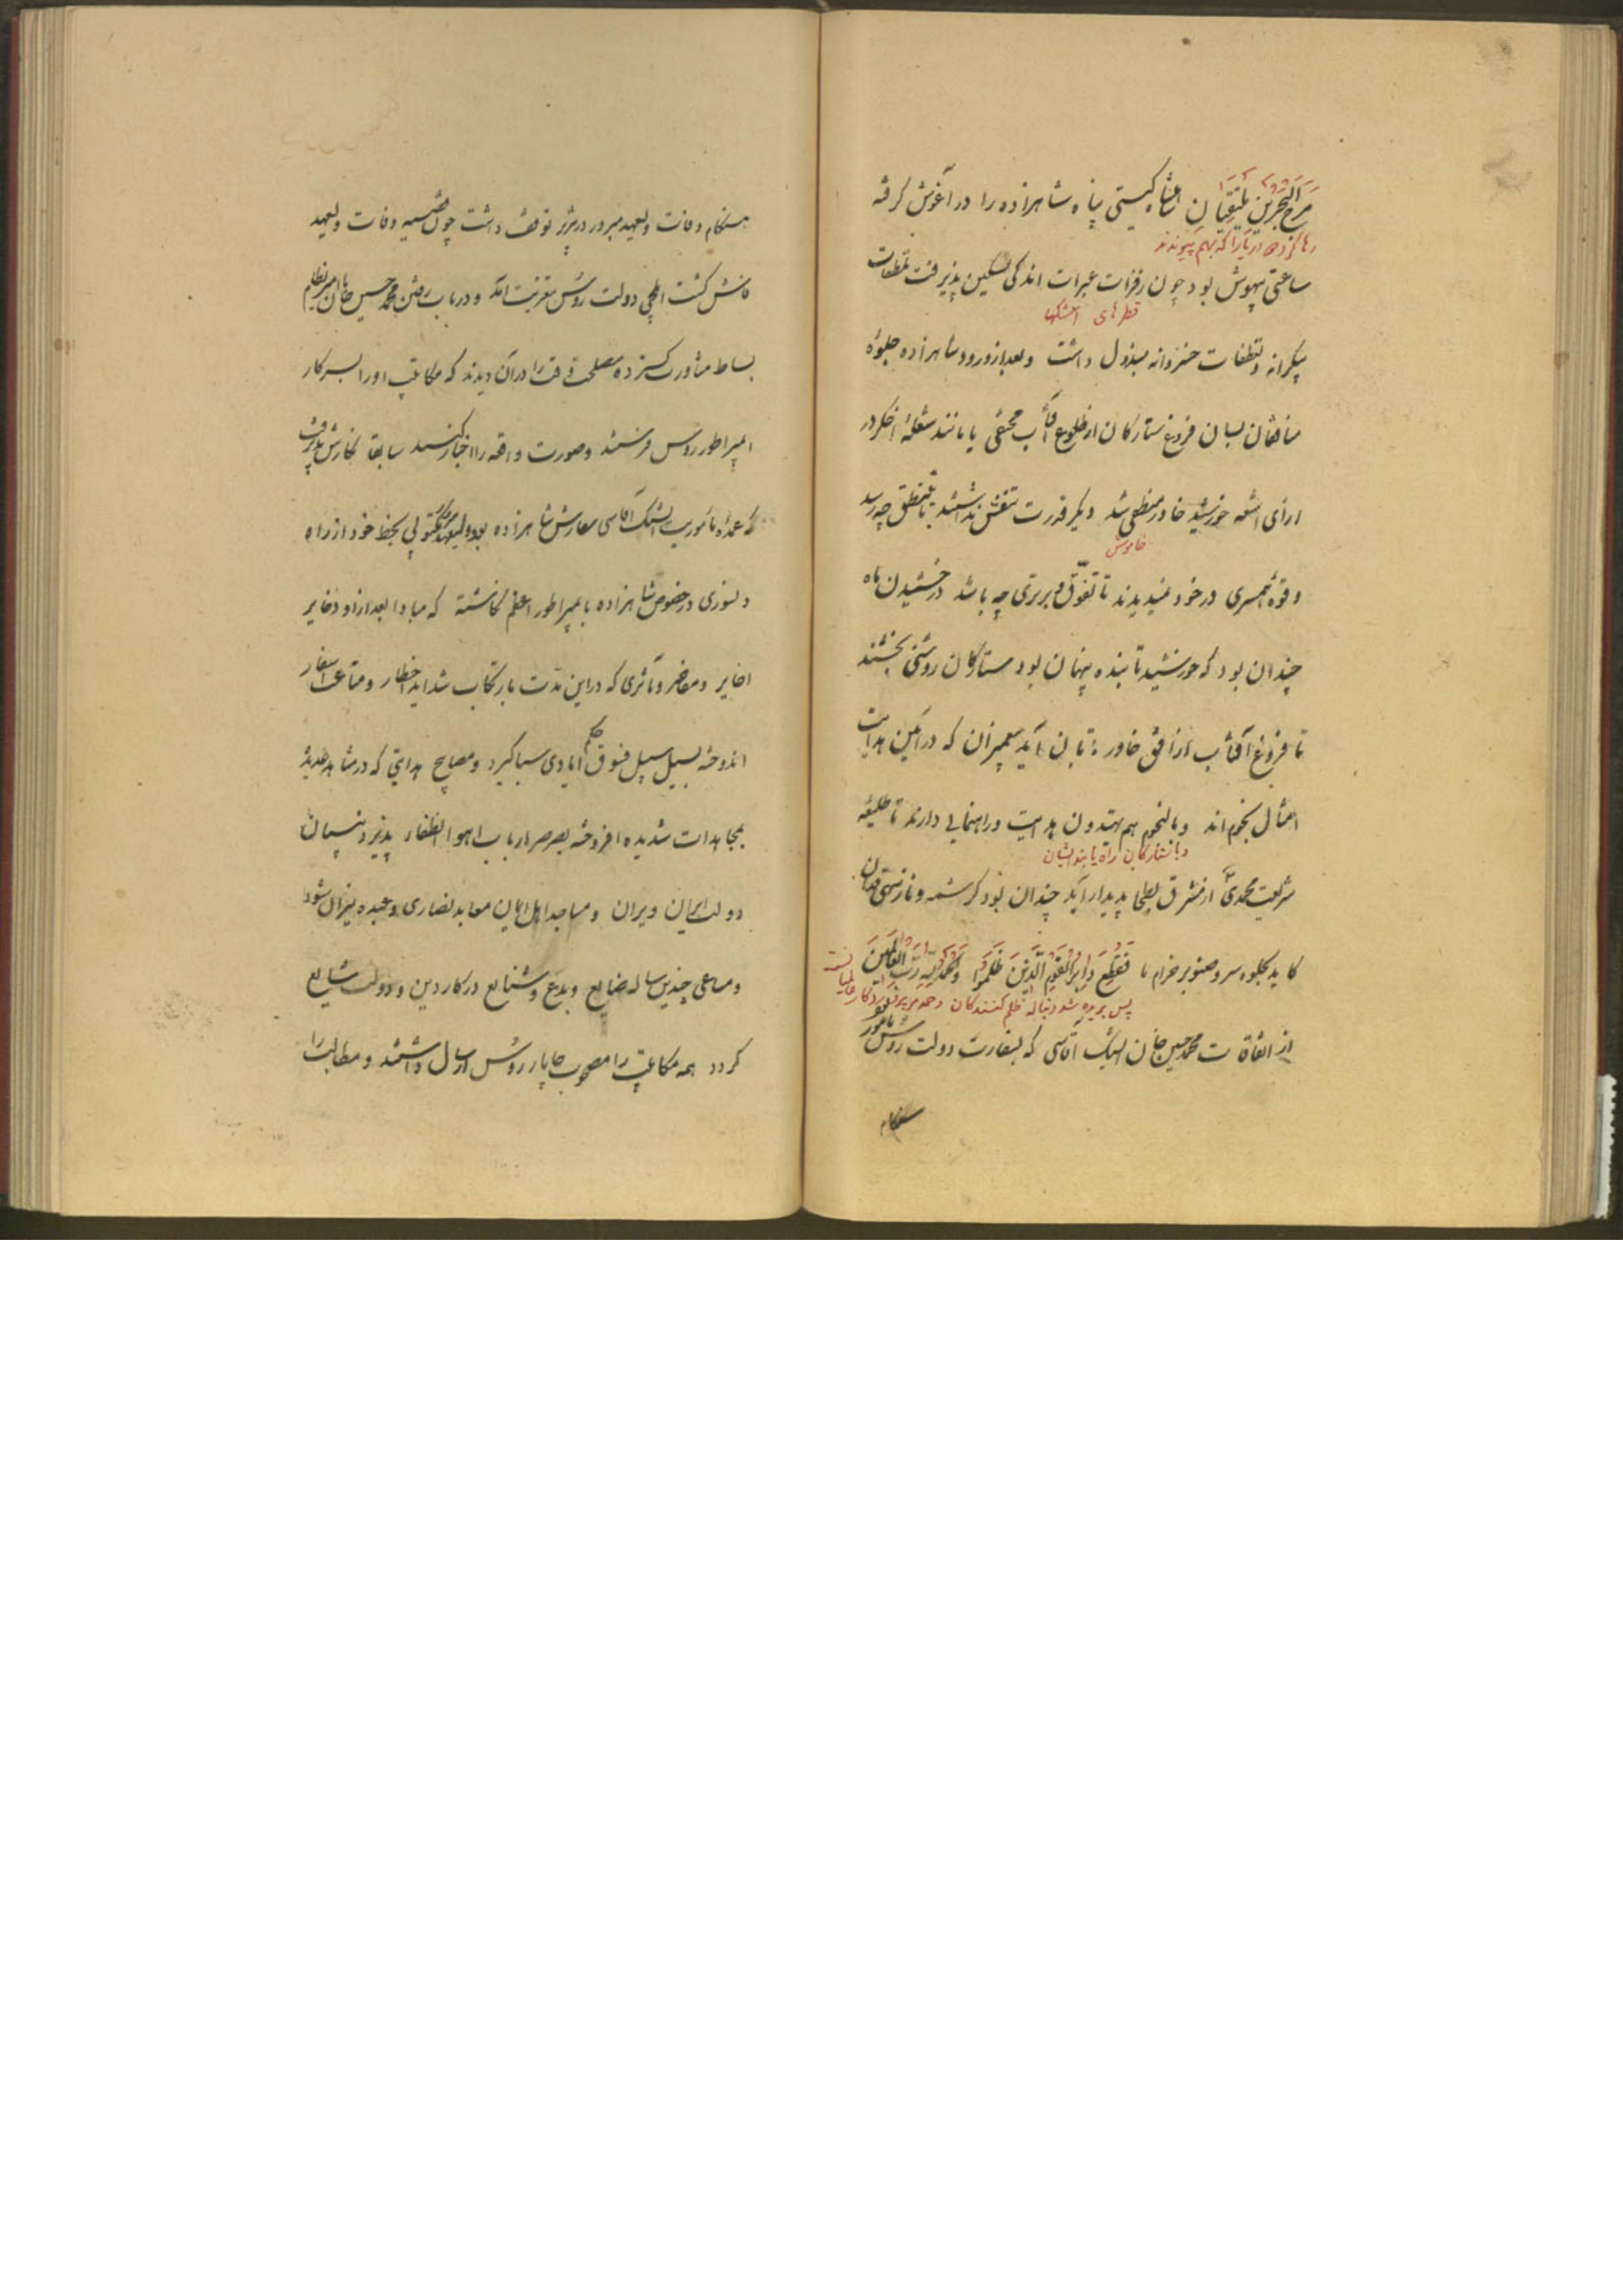 مرج البحرین یلتقیان شاه گیتی پناه شاهزاده را در آغوش گرفته
رها کرد دو دریا را که بهم پیوندند
ساعتی بیهوش بود چون زفرات عبرات اندکی تسکین پذیرفت تلطفات
قطرهای اشکها
بیکرانه و تعطفات خسروانه مبذول داشت و بعد از ورود شاهزاده جلوه
منافقان بسان فروغ ستارگان از طلوع آفتاب مختفی یا مانند شعله اخگر در
ازای اشعه خورشید خاور منطفی شد دیگر قدرت تنفس نداشتند تا بتنطق چه رسد
خاموش
و قوه همسری در خود نمیدیدند تا تفوق و برتری چه باشد درخشیدن ماه
چندان بود که خورشید تابنده پنهان بود ستارگان روشنی بخشند
تا فروغ آفتاب از افق خاور تابان آید پیمبران که در آئین هدایت
امثال نجوم اند و بالنجم هم یهتدون هدایت و راهنمایی دارند تا طلیعه
و با ستارگان راه یابند ایشان
شریعت محمدی از مشرق بطحا پدیدار آید چندان بود کرشمه و ناز سهی قدان
کاید بجلوه سرو صنوبر خرام ما فقطع دابر القوم الذین ظلموا و الحمد لله رب العالمین
پس بریده شد دنباله ظلم کنندگان و حمد مر پروردگار عالمیان است
از اتفاقات محمد حسین خان ایشیک آقاسی که بسفارت دولت روس مأمور بود
هنگام
هنگام وفات ولیعهد مبرور در تبریز توقف داشت چون قضیه وفات ولیعهد
فاش گشت ایلچی دولت روس بتعزیت آمد و در باب رفتن محمد حسین خان با امیر نظام
بساط مشاورت گسترده مصلحت وقت را در آن دیدند که مکاتیب او را بسرکار
امپراطور روس فرستند و صورت واقعه را اخبار کنند سابقا نگارش پذیرفت
که عمده مأموریت ایشیک آقاسی سفارش شاهزاده بود و ولیعهد مکتوبی بخط خود از راه
دلسوزی در خصوص شاهزاده بامپراطور اعظم نگاشته که مبادا بعد از او ذخایر
اخایر و مفاخر و مآثری که در این مدت بارتکاب شداید اخطار و متاعب اسفار
اندوخته بسیل سبیل فنوق حکم ایادی سبا گیرد و مصابیح هدایتی که در مشاهد عدیده
بمجاهدات شدیده افروخته بصرصر ارباب اهوا انطفاء پذیرد بنیان
دولت ایران ویران و مساجد اهل ایمان معابد نصاری و عبده نیران شود
و مساعی چندین ساله ضایع و بدع و شنایع در کار دین و دولت شایع
گردد همه مکاتیب را مصحوب چاپار روس ارسال داشتند و مطالب را